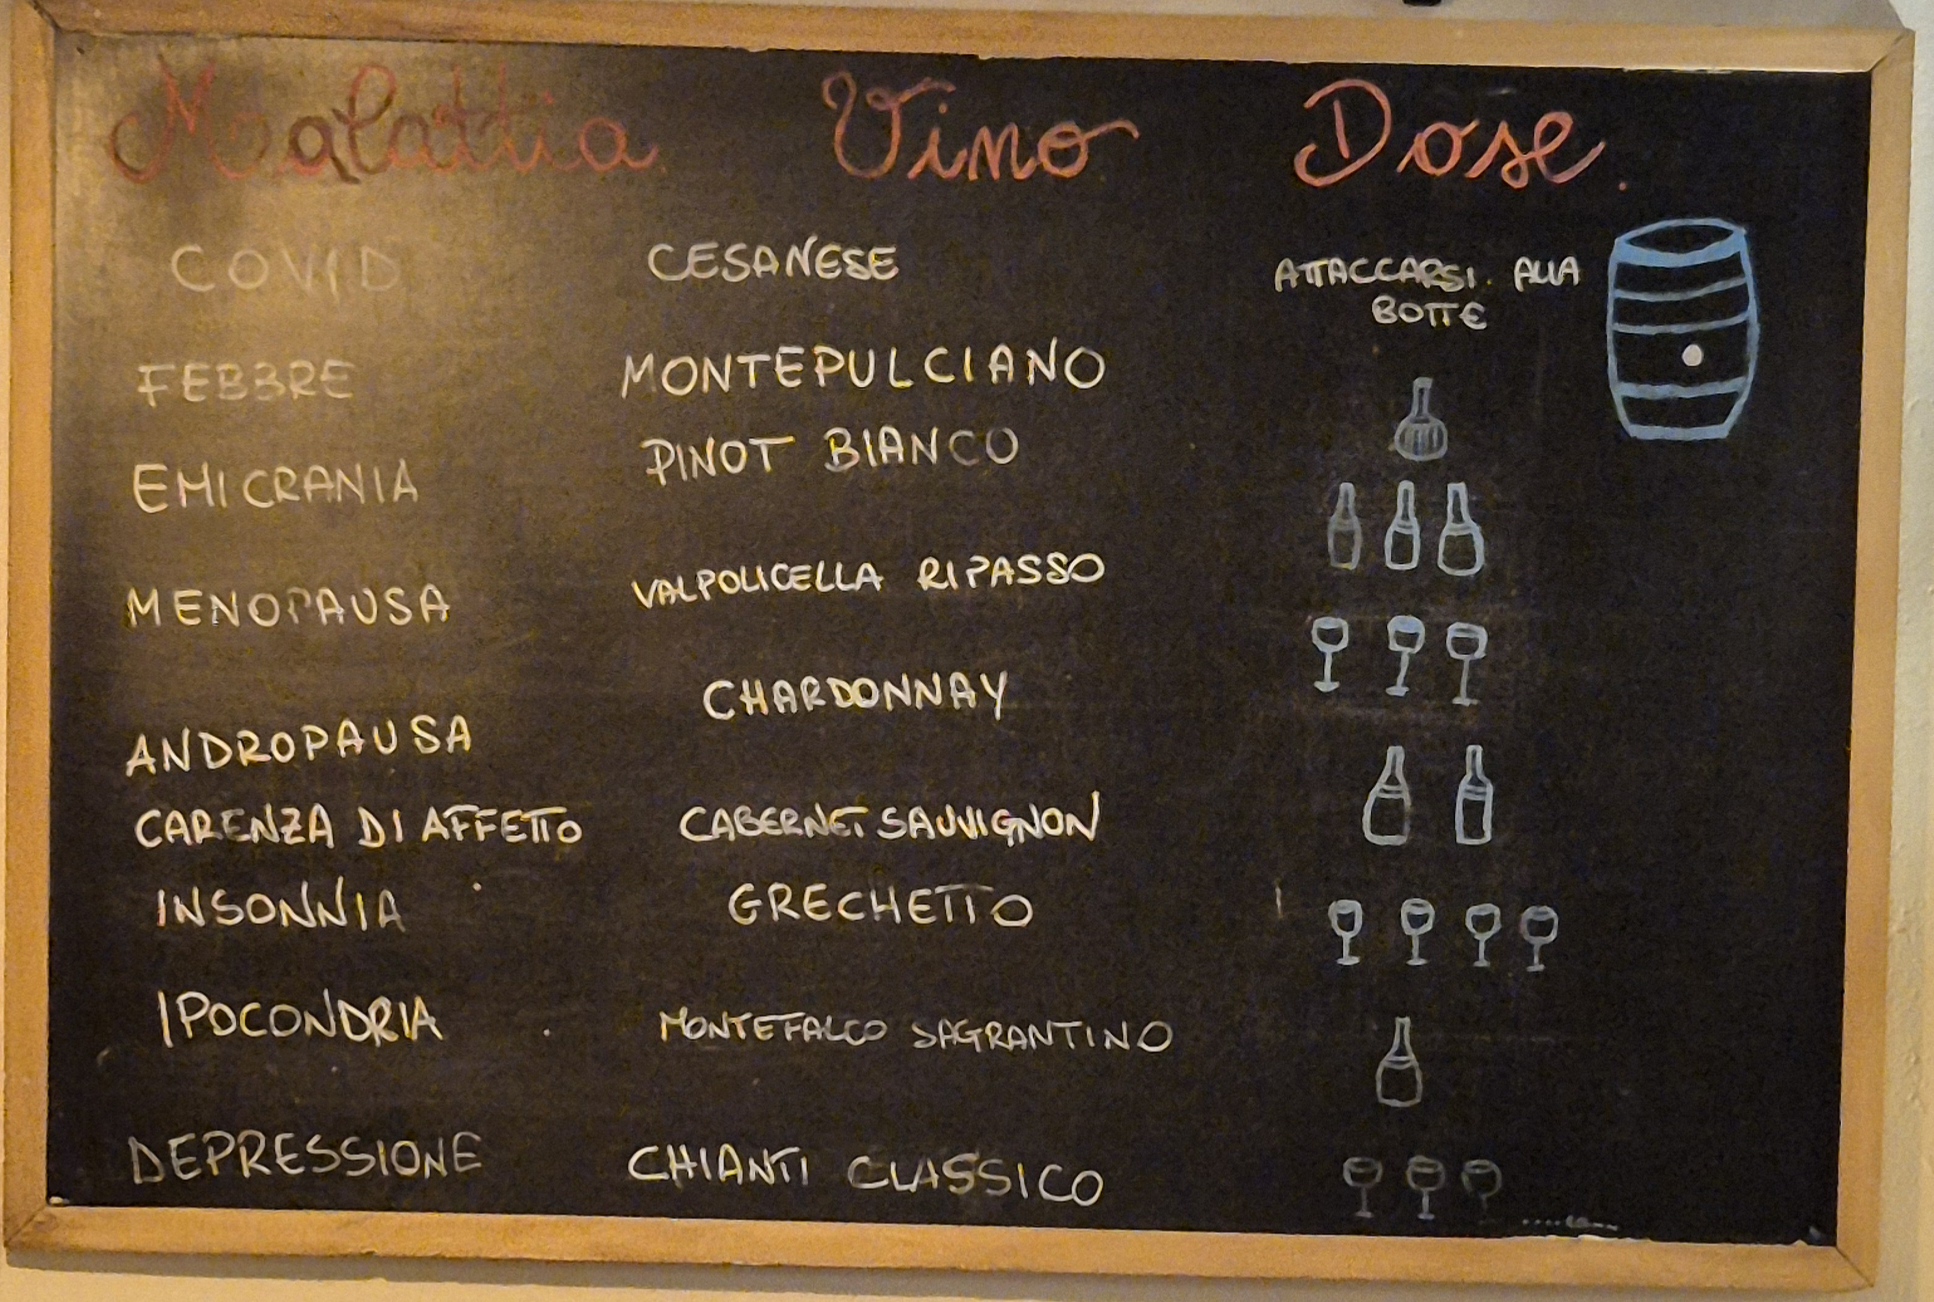 Malattia Vino Dose
COVID CESANESE ATTACCARSI ALLA
BOTTE
FEBBRE MONTEPULCIANO
EMICRANIA PINOT BIANCO
MENOPAUSA VALPOLICELLA RIPASSO
ANDROPAUSA CHARDONNAY
CARENZA DI AFFETTO CABERNET SAUVIGNON
INSONNIA GRECHETTO
IPOCONDRIA MONTEFALCO SAGRANTINO
DEPRESSIONE CHIANTI CLASSICO